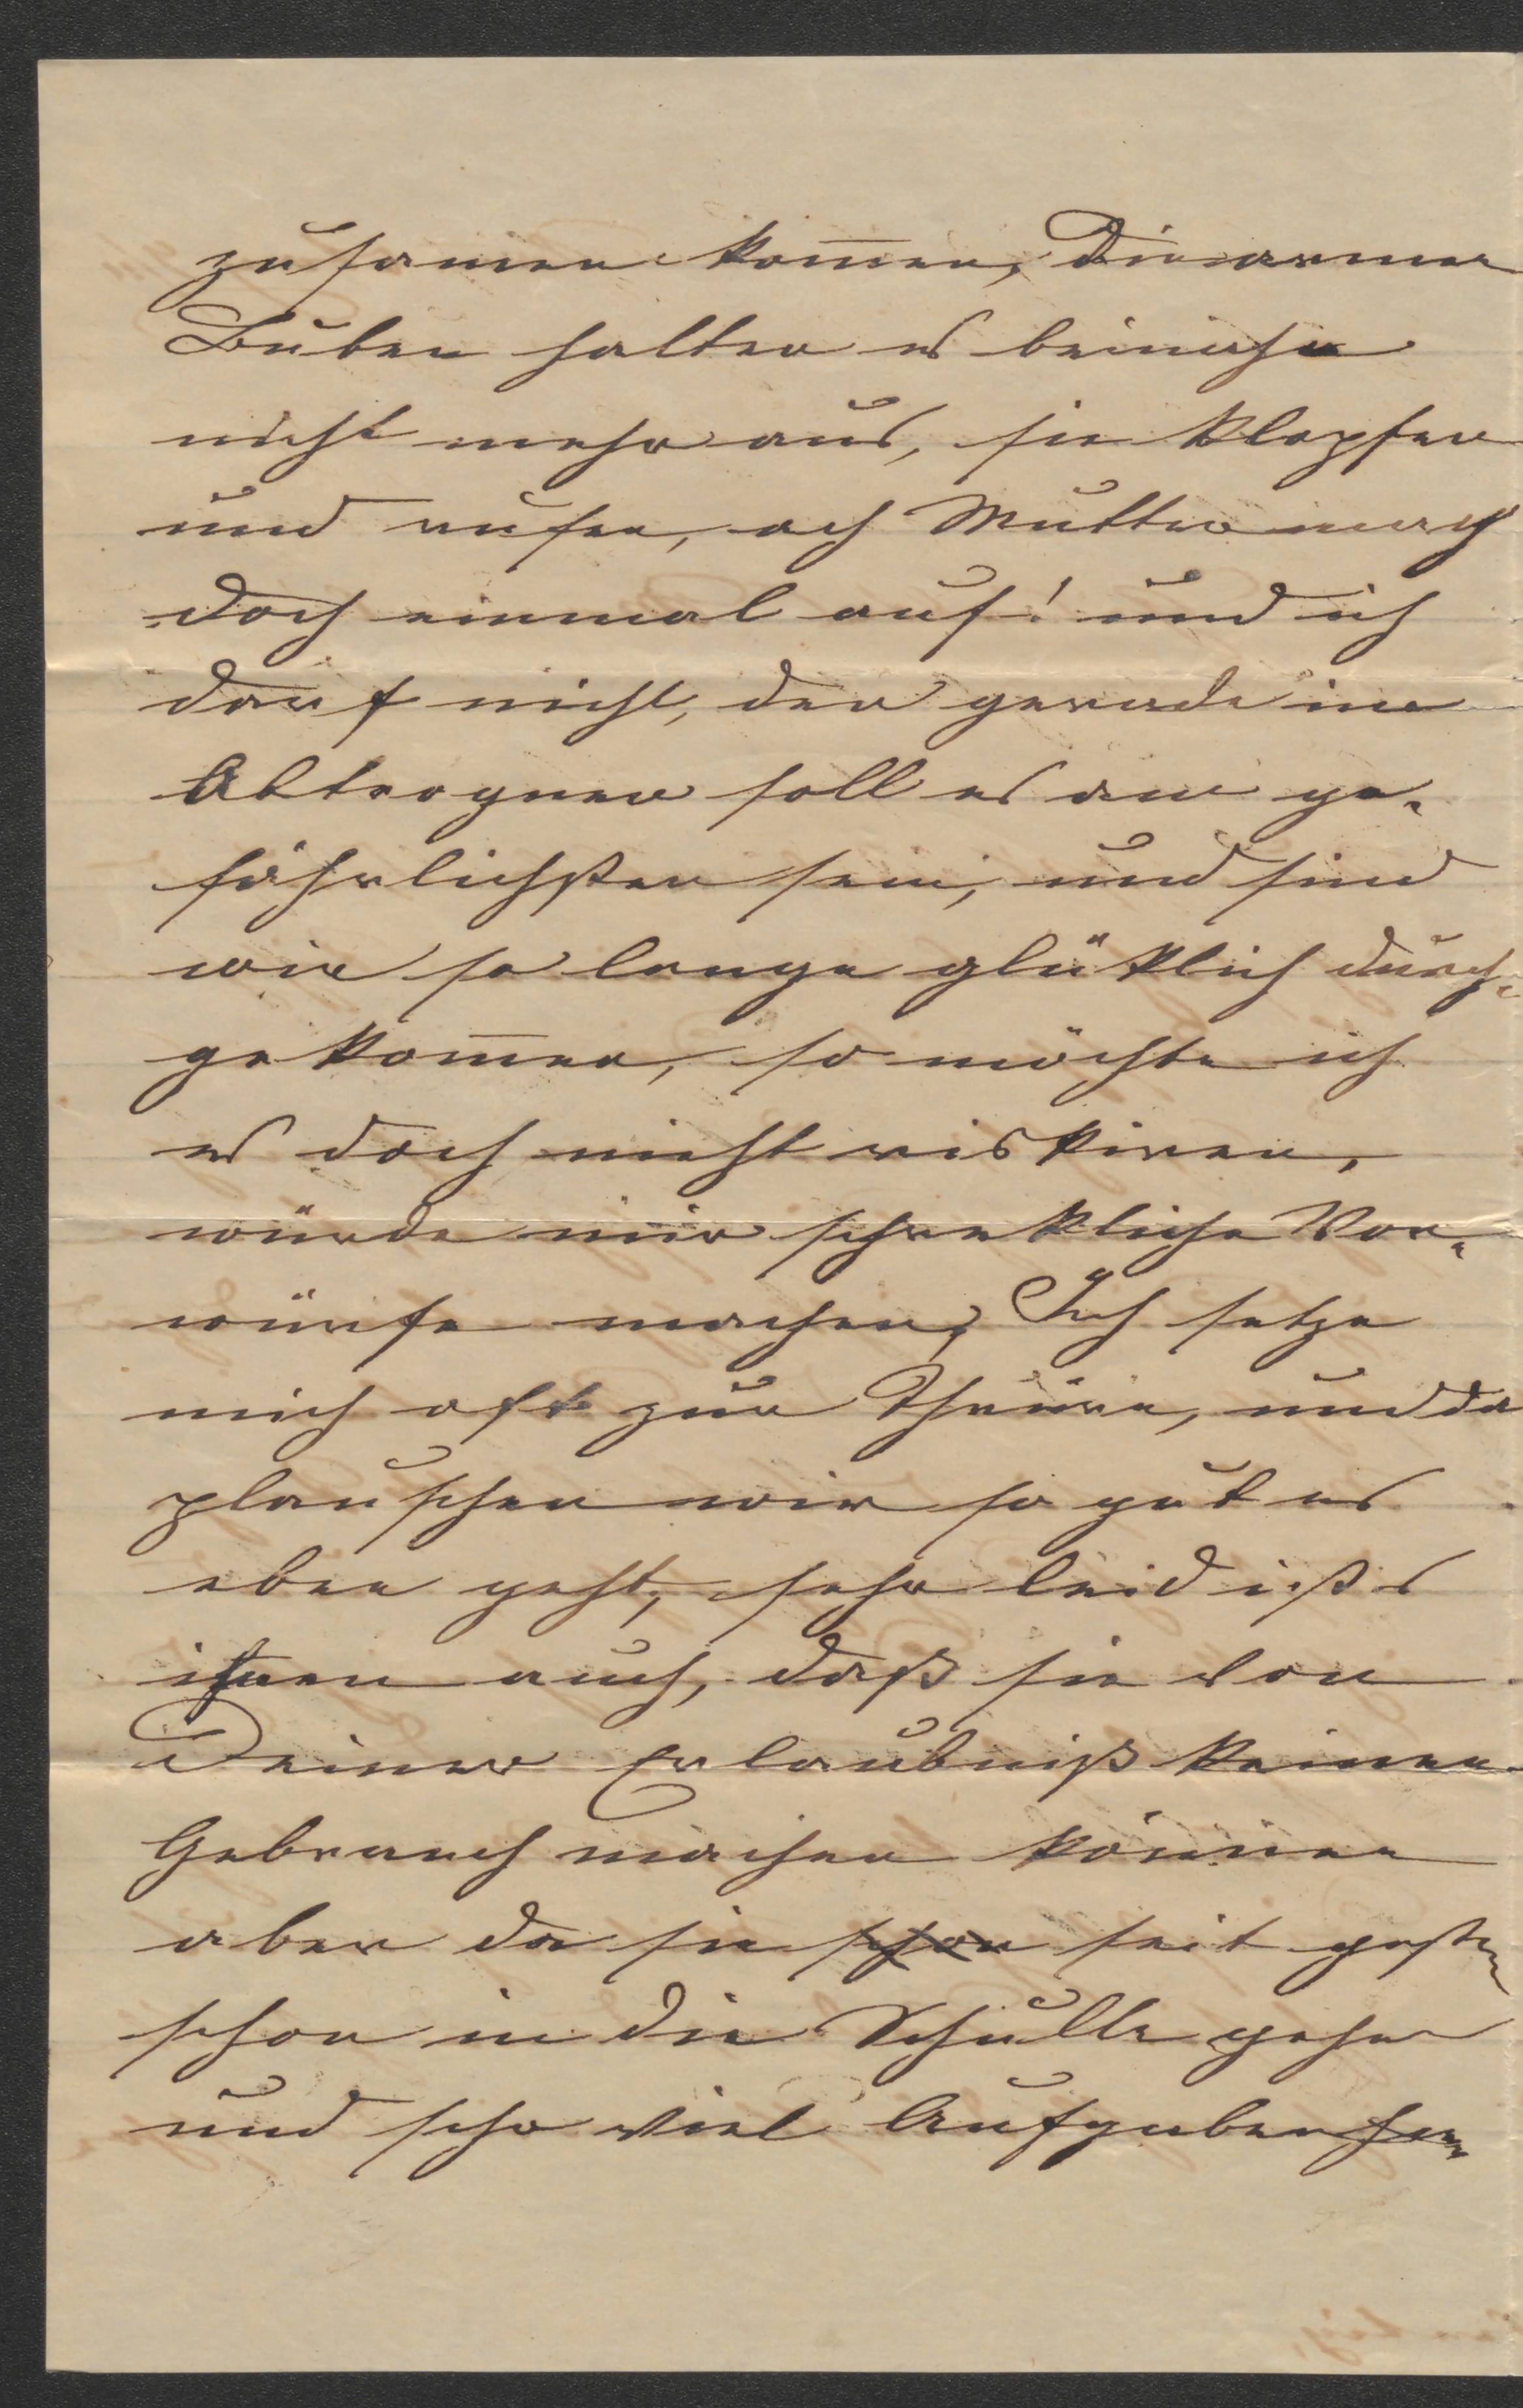 zusamen kom̄en, Die armen
Buben halten es beinahe
nicht mehr aus, sie klopfen
und rufen, ach Mutter mach
doch einmal auf! und ich
darf nicht, den gerade im
Abtrognen soll es am ge-
fährlichsten sein, und sind
wir so lange glüklich durch-
gekom̄en, so möchte ich
es doch nicht riskiren,
würde mir schrekliche Vor-
würfe machen, Ich setze
mich oft zur Thüre, und da
plauschen wir so gut es
eben geht, sehr leid ists
ihnen auch, daß sie von
Deiner Erlaubniß keinen
Gebrauch machen können
aber da sie schon seit gestern
schon in die Schulle gehen
und sehr viel Aufgaben